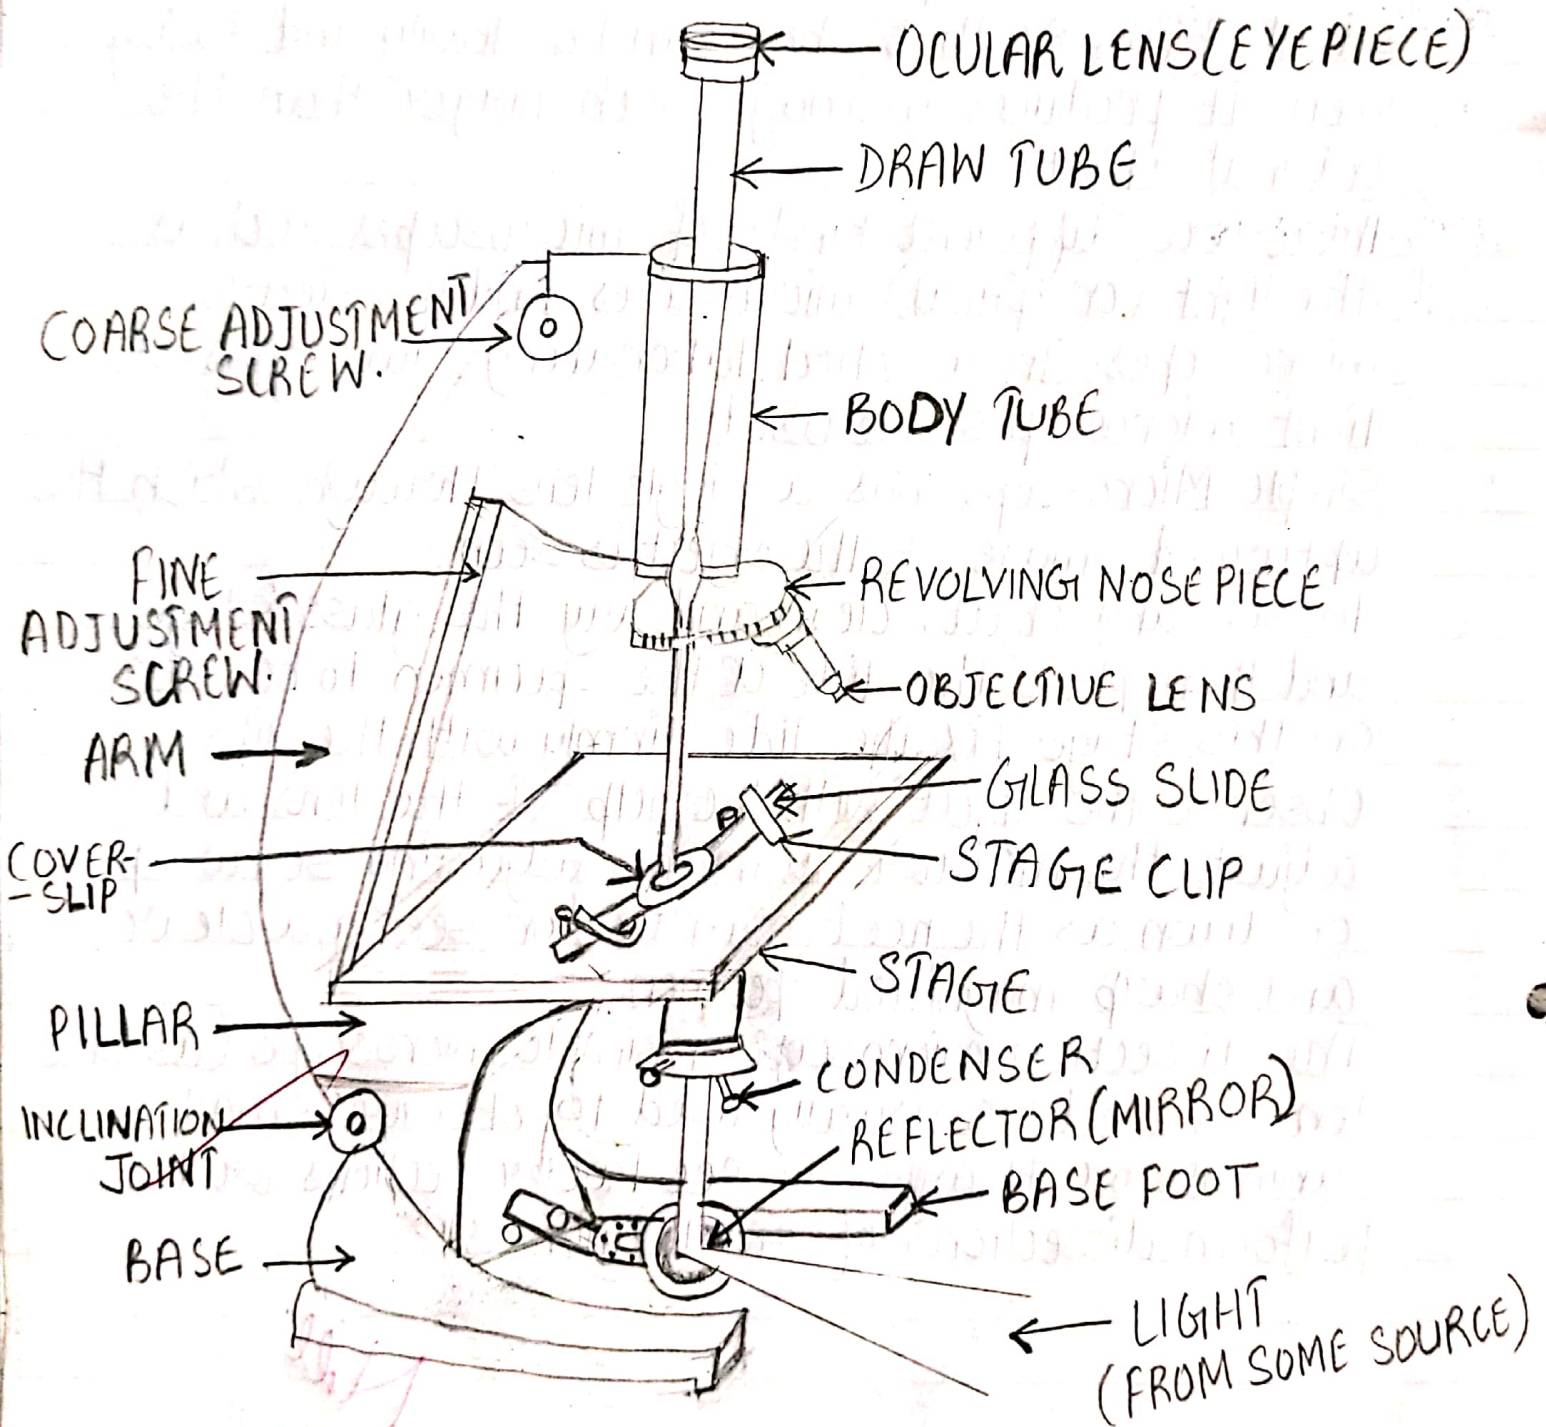 OCULAR LENS (EYEPIECE)
DRAW TUBE
COARSE ADJUSTMENT
SCREW.
BODY TUBE
FINE
ADJUSTMENT
SCREW.
REVOLVING NOSE PIECE
OBJECTIVE LENS
ARM
GLASS SLIDE
COVER-
-SLIP
STAGE CLIP
STAGE
PILLAR
CONDENSER
REFLECTOR (MIRROR)
INCLINATION
JOINT
BASE FOOT
BASE
LIGHT
(FROM SOME SOURCE)